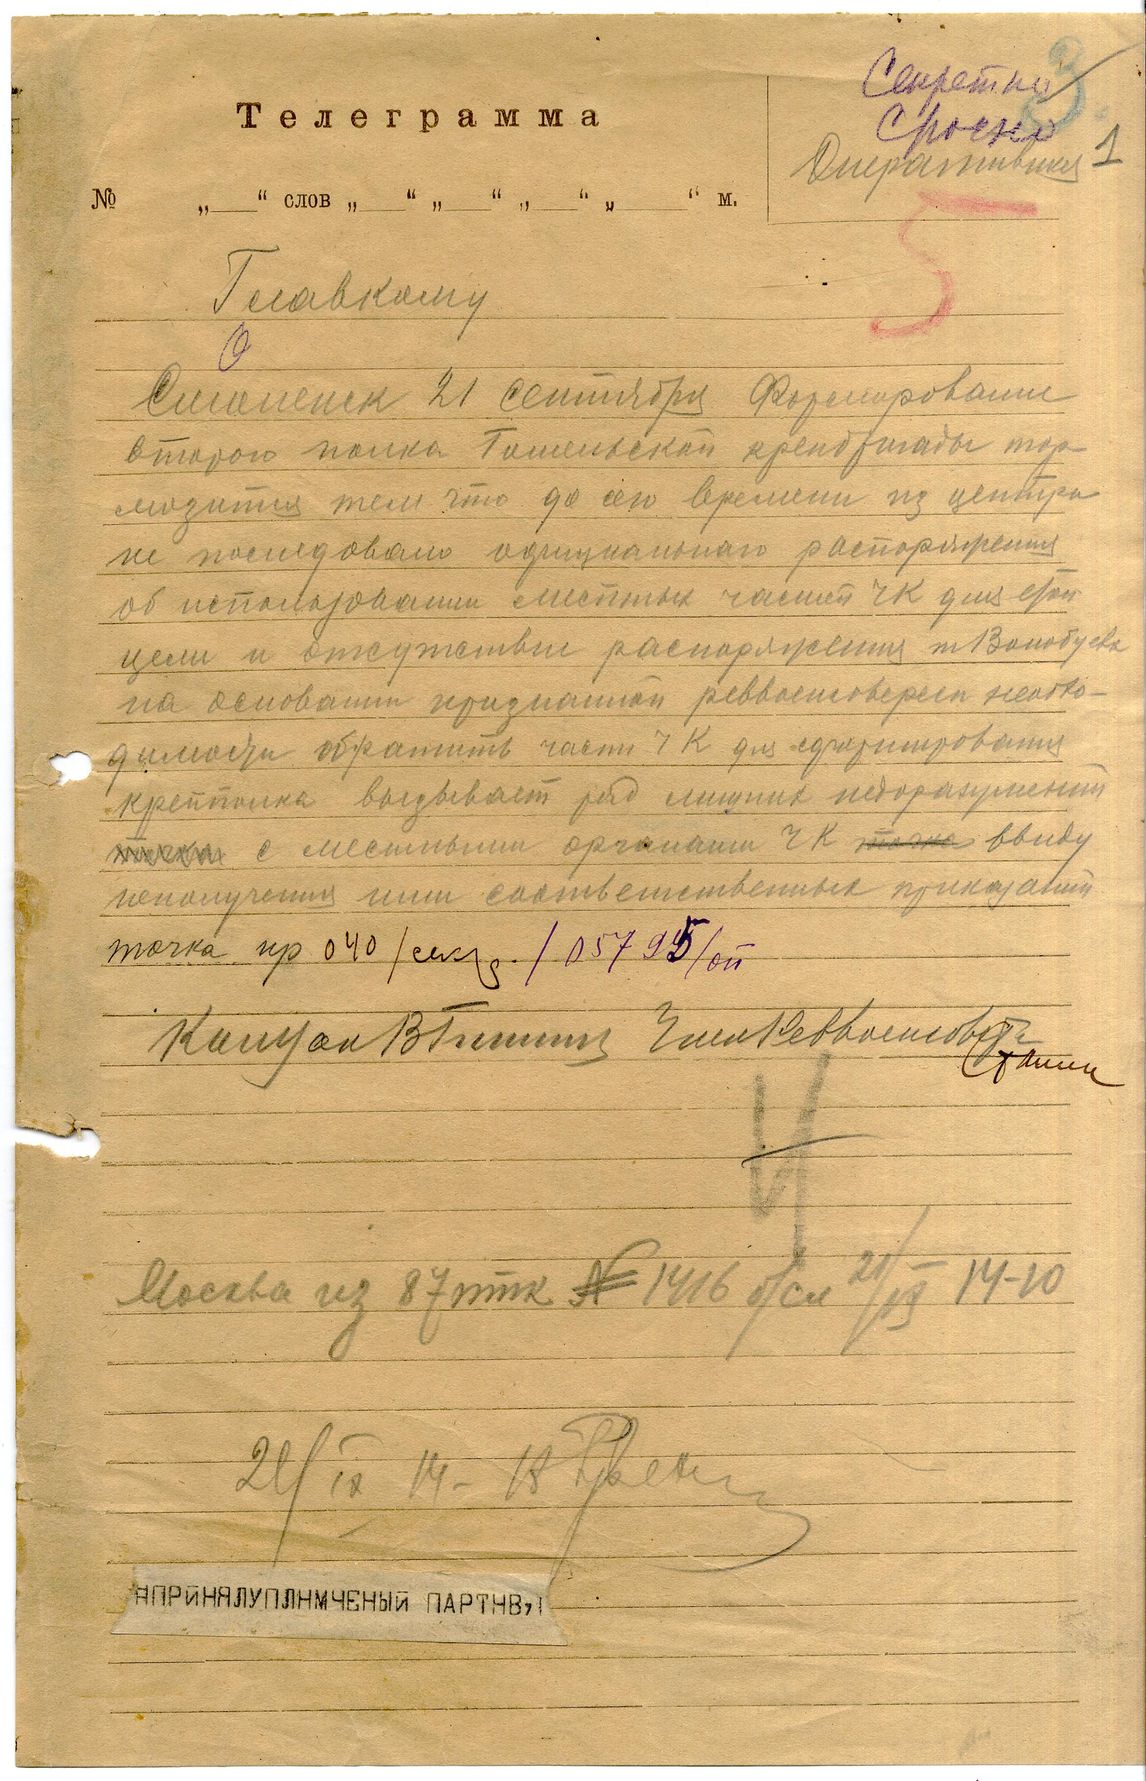 3
Секретно
Срочно
Оперативная 1
Телеграмма
№ „___“ слов „___“ „___“ „___“ „____“ м.
5
Главкому
Смоленск 21 сентября Формирование
второго полка Гомельской крепбригады тор-
мозится тем что до сего времени из центра
не последовало официального распоряжения
об использовании местных частей ЧК для этой
цели и отсутствие распоряжения т Волобуева
на основании признанной реввоенсоверсп необхо-
димости обратить части ЧК для сформирования
крепполка вызывает ряд лишних недоразумений
с местными органами ЧК точка ввиду
неполучения ими соответственных приказаний
точка нр 040/секр./05795/оп
КомЗап ВГиттис Член Реввоенсовета
Сталин
Москва из 87 птк № 1416 21/IX 14-10
21/IX 14-18
ЯПРИНЯЛУПЛНМЧЕНЫЙ ПАРТНВ,